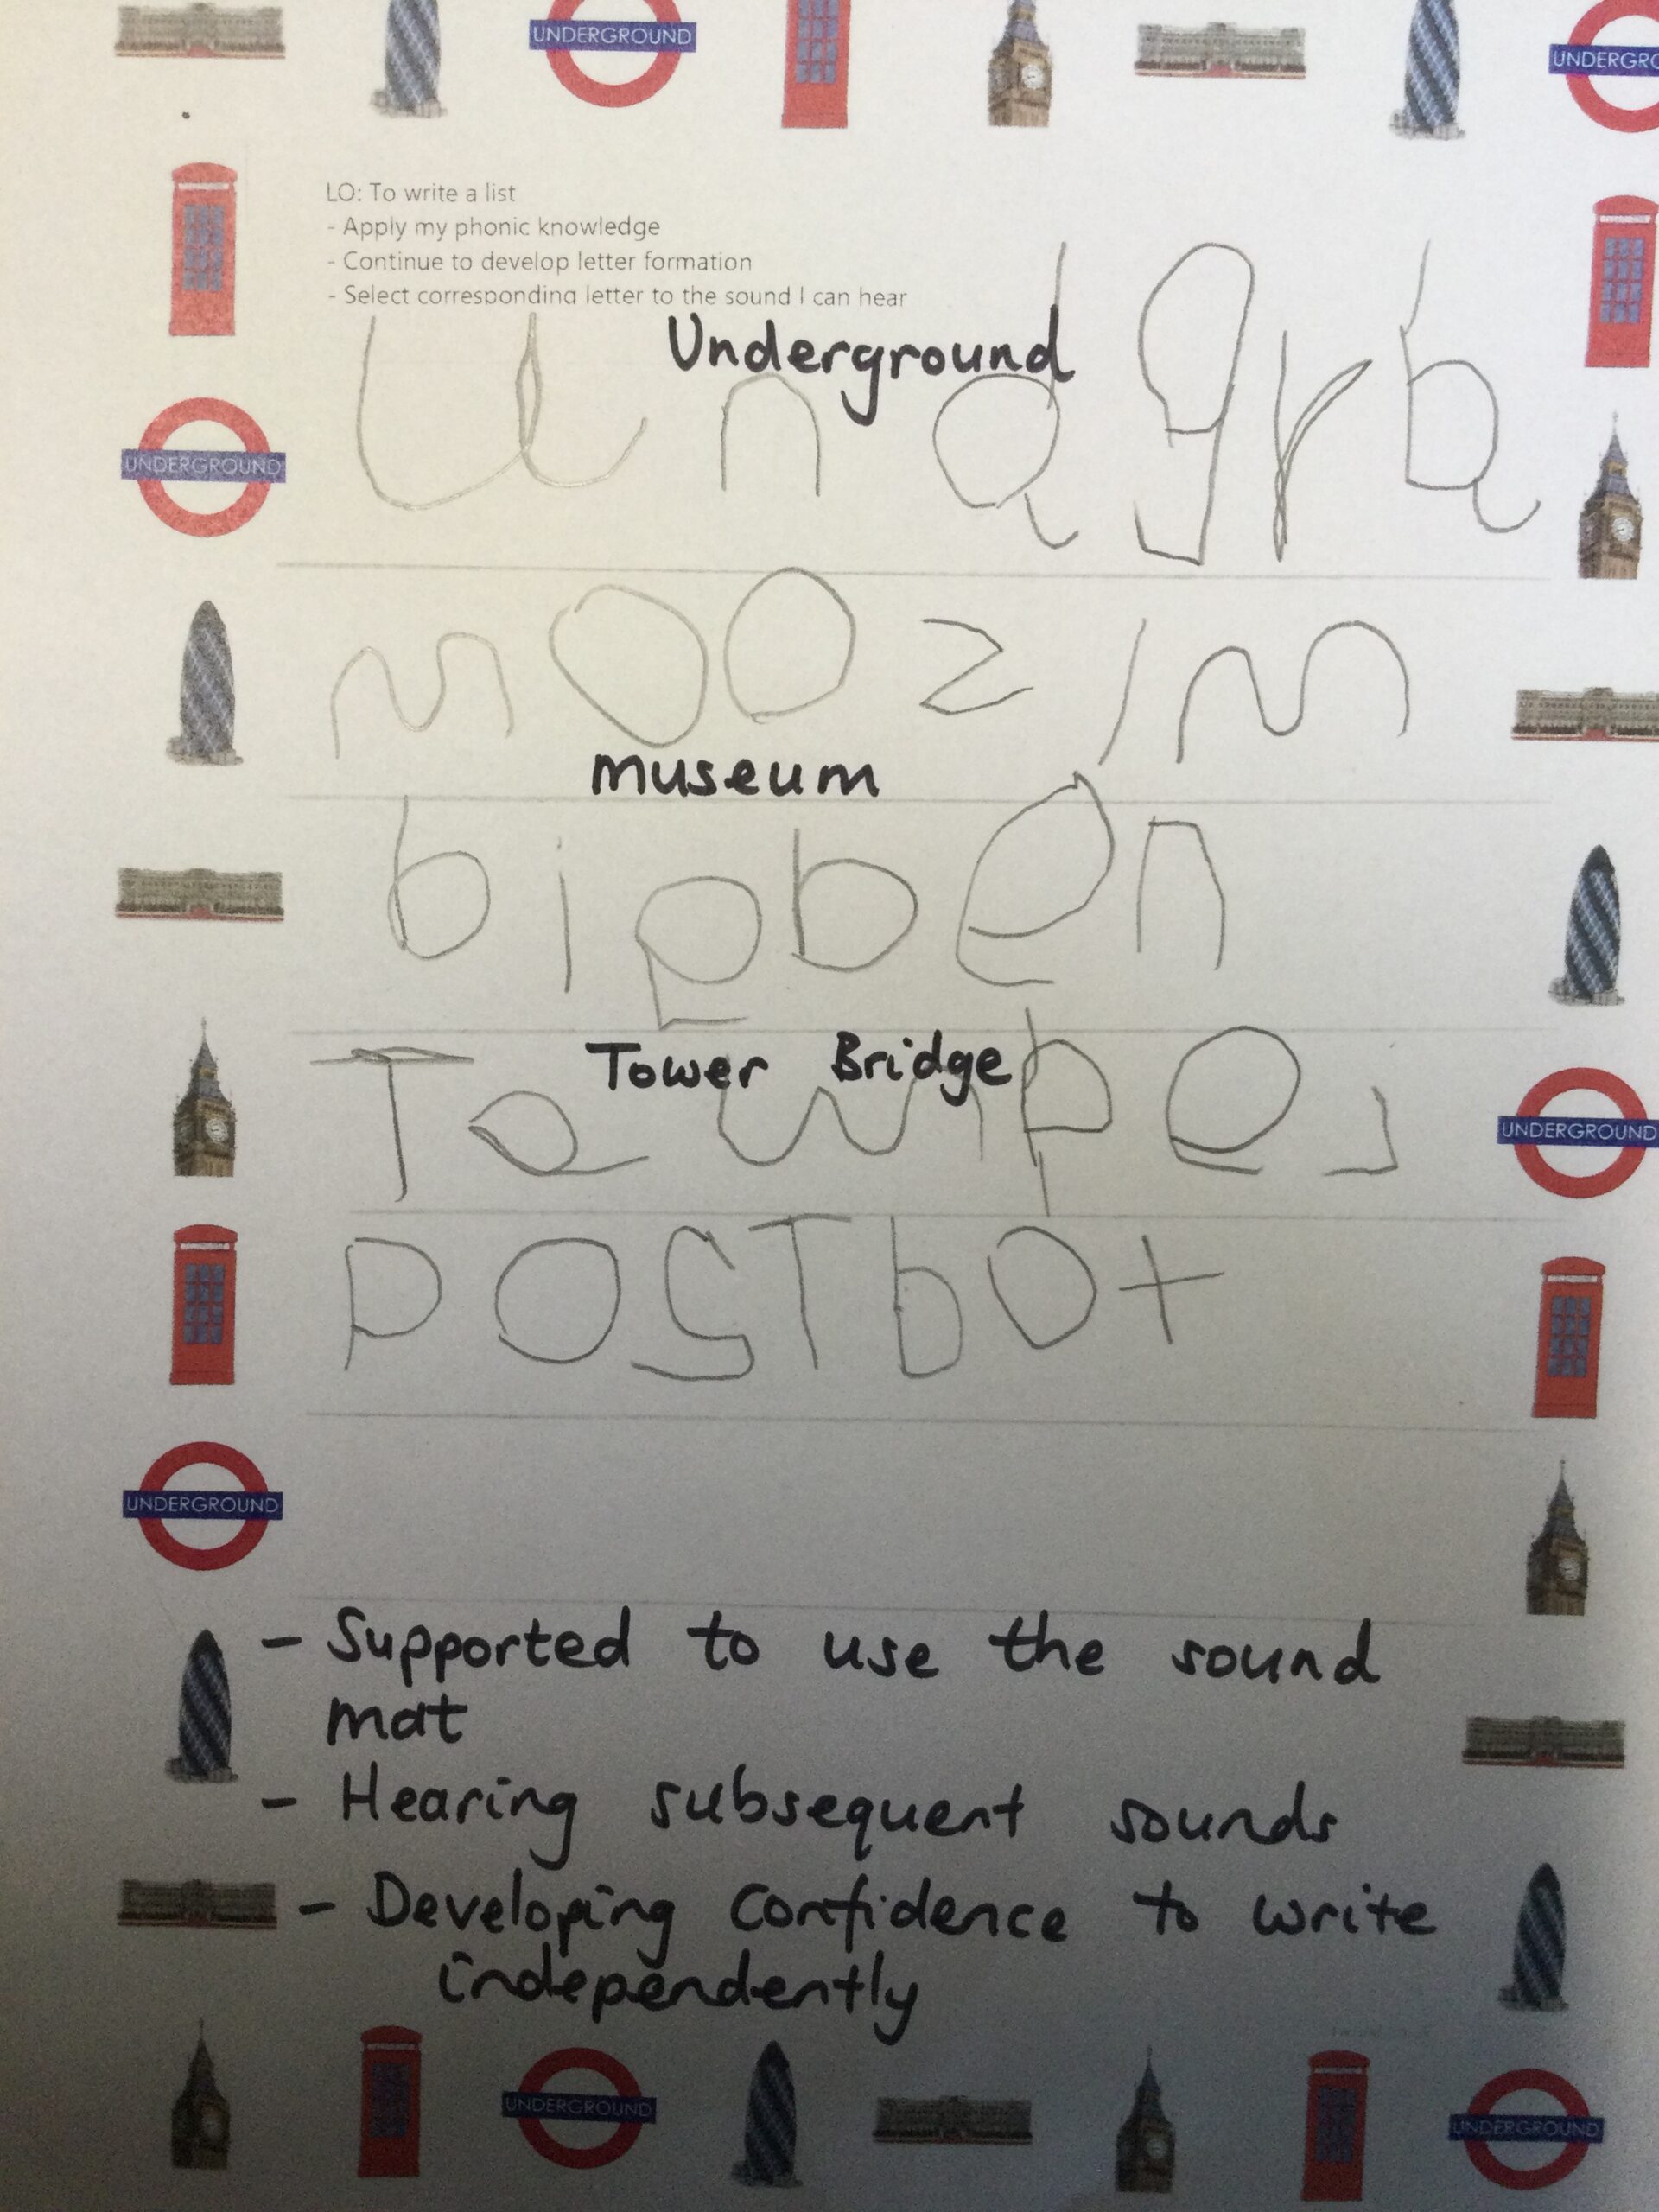 UNDERGROUND
UNDERGRO
LO: To write a list
- Apply my phonic knowledge
- Continue to develop letter formation
- Select corresponding letter to the sound I can hear
Underground
undgrd
UNDERGROUND
moozim
museum
bigben
Tower Bridge
UNDERGROUND
postbox
UNDERGROUND
- Supported to use the sound
mat
- Hearing subsequent sounds
- Developing confidence to write
independently
UNDERGROUND
UNDERGROUND